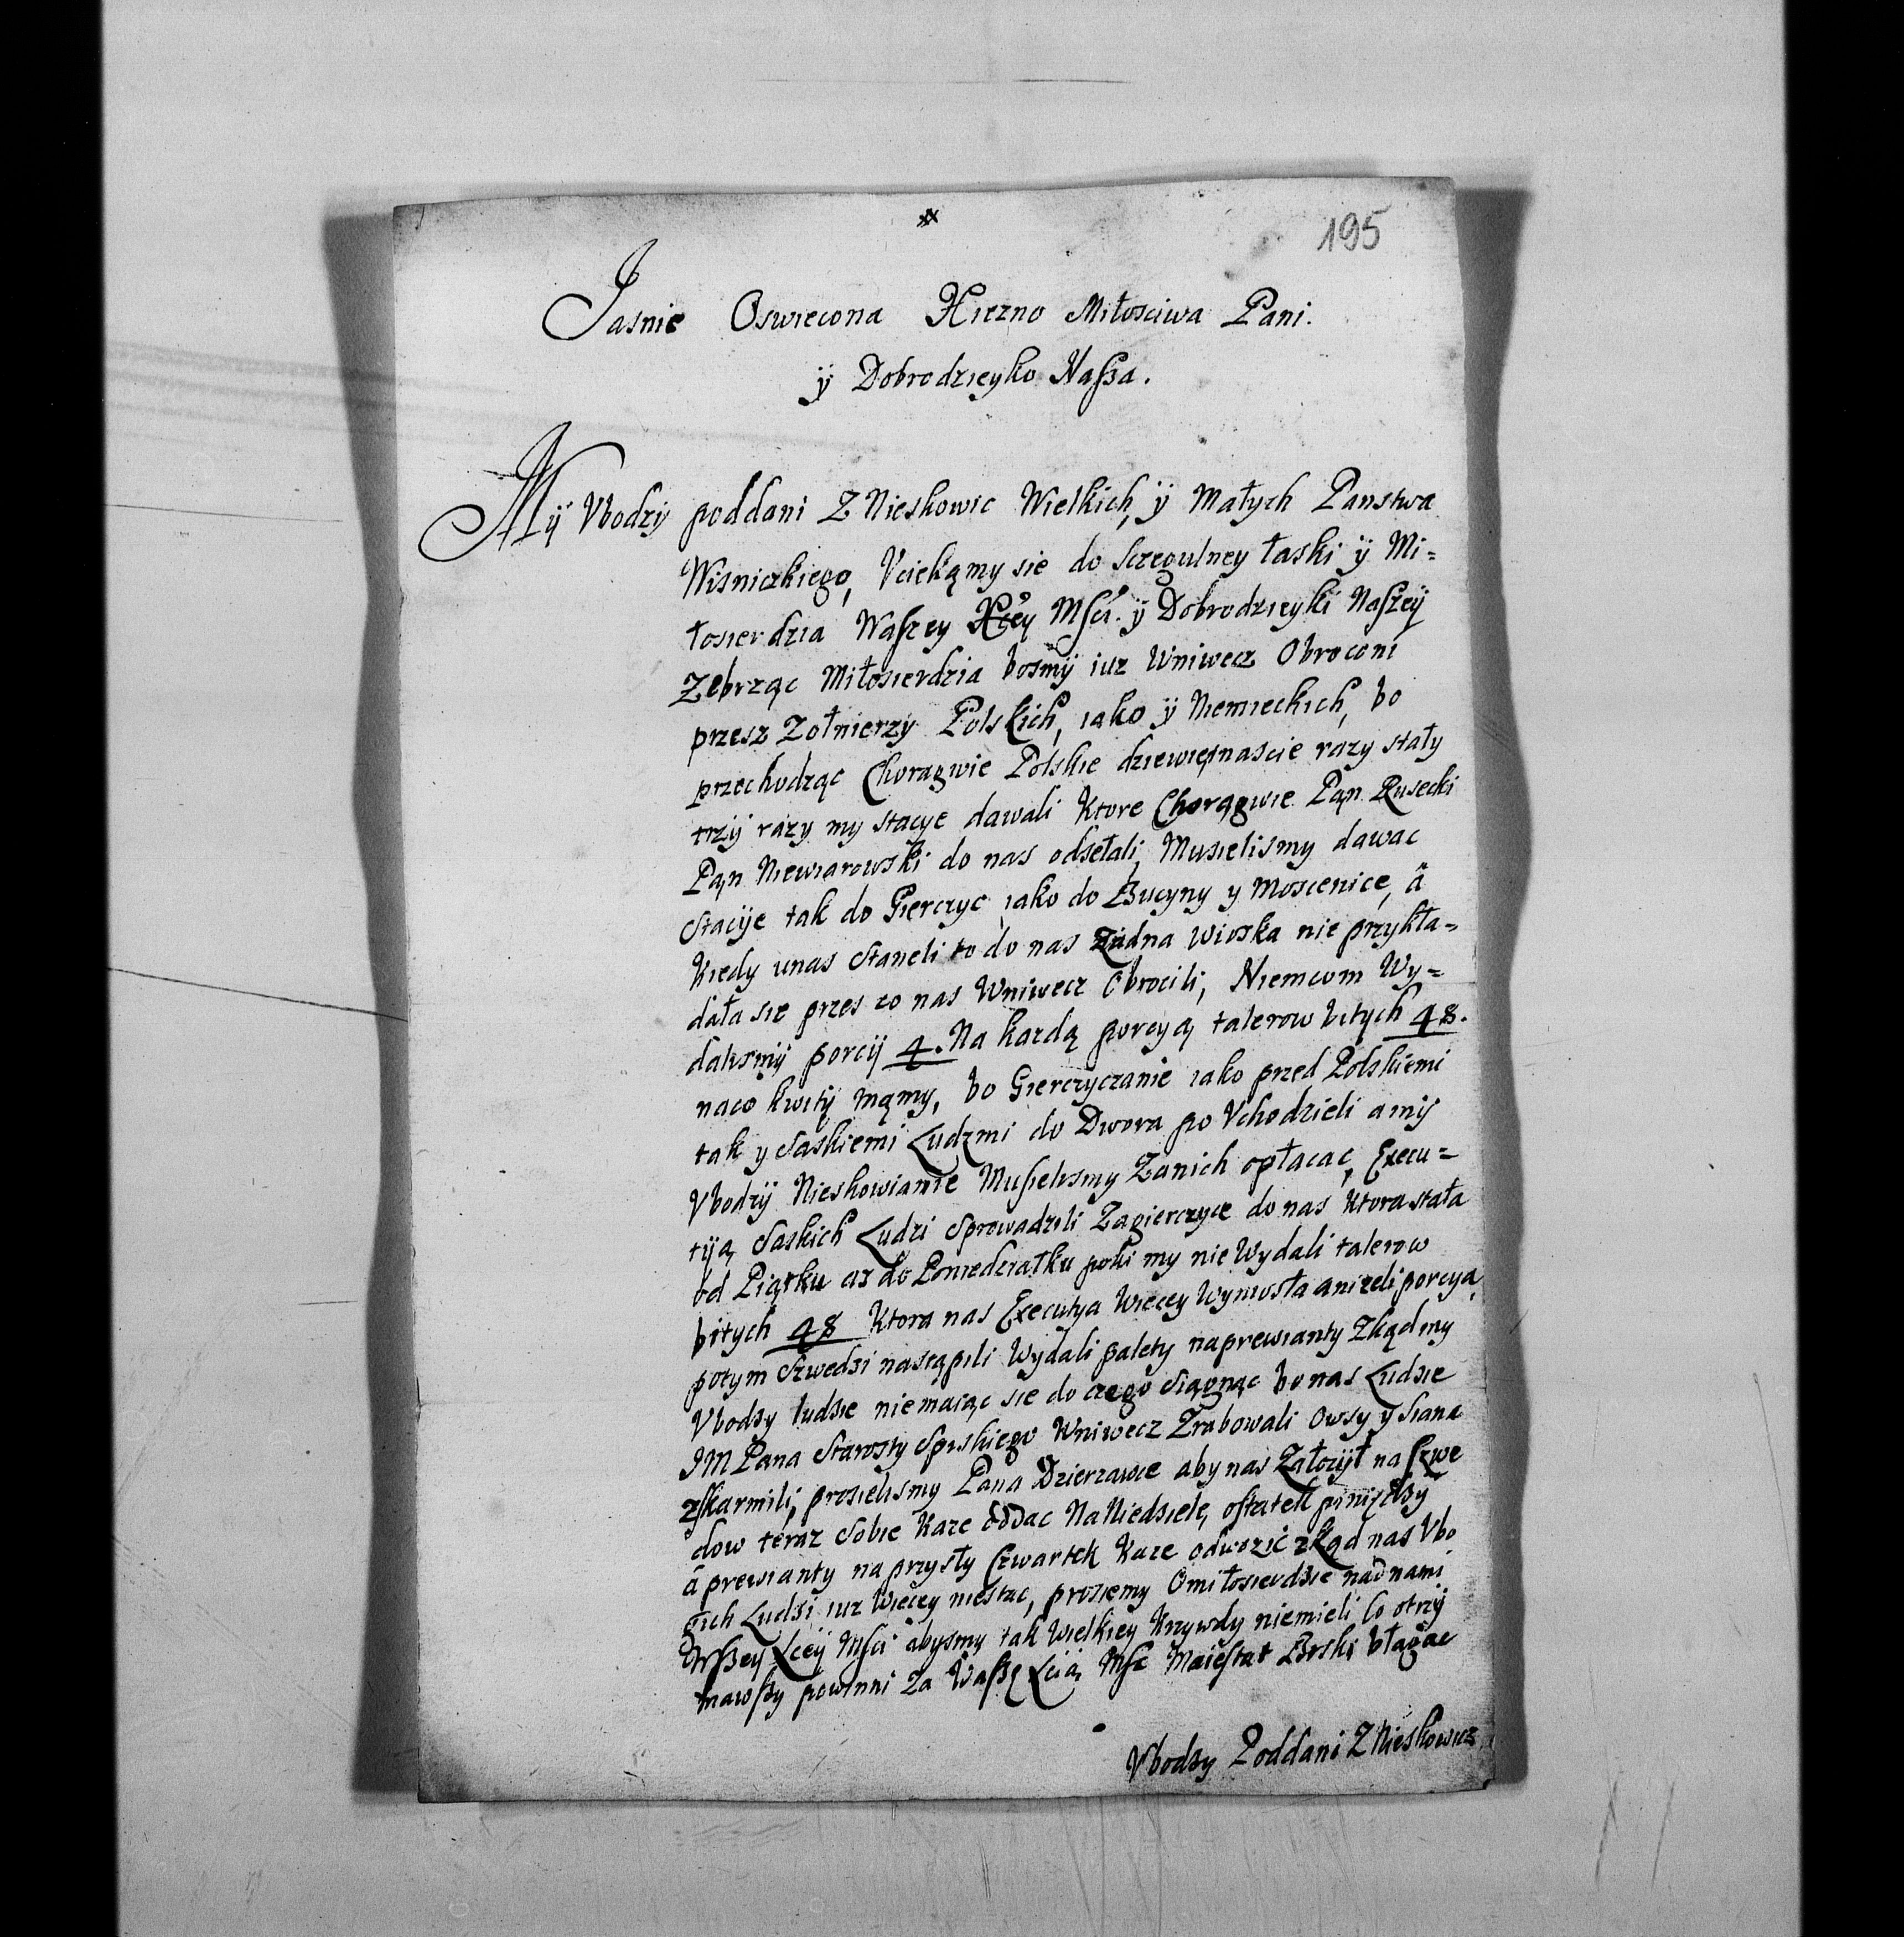 195
Jasnie Oswiecona Xiezno Miłosciwa Pani.
ÿ Dobrodzieyko Naßa.
Mÿ Vbodzÿ poddani Z Nieskowic Wielkich, ÿ Małych Panstwa
Wisnickiego, Vciekąmy sie do sczegulney łaski ÿ Mi=
łosierdzia Waszey Xcey Mści. ÿ Dobrodzieyki Naszeÿ
Zebrząc Miłosierdzia bosmÿ iuz Wniwecz Obroconi
przesz Zołnierzÿ Polskich, iako ÿ Niemieckich, bo
przechodząc Chorągwie Polskie dziewiętnascie razy stały
trzÿ razy my stacye dawali Ktore Chorągwie Pąn Rusecki
Pąn Niewiarowski do nas odsełali, Musielismy dawac
Stacÿe tak do Gierczyc iako do Bucyny y Moscenice, ä
Kiedy unas Staneli to do nas Zadna Wioska nie przykła=
dała sie przes co nas Wniwecz Obrocili, Niemcom Wy=
dalismÿ porcÿ 4. Na kazdą porcyą talerow bitych 48.
naco kwitÿ mąmy, bo Gierczyczanie iako przed Polskiemi
tak y Saskiemi Ludzmi do Dwora po Vchodzieli a mÿ
Vbodzÿ Nieskowianie Musielismy Zanich opłacac, Execu=
tÿą Saskich Ludzi Sprowadzili Zagierczyce do nas Ktora stała
od Piątku az do Poniedziałku poki my nie Wydali talerow
bitych 48 Ktora nas Executya Wiecey Wyniosła anizeli porcya,
potym Szwedzi nastąpili Wydali palety naprewianty Zkąd my
Vbodzy ludzie niemaiąc sie do czego Siągnąc bo nas Ludzie
JM Pana Starosty Spiskiego Wniwecz Zrabowali Owsy y Siana
zskarmili, prosielismy Pana Dzierzawce aby nas Załozÿł na Szwe
dow teraz Sobie Kaze oddac Na Niedziele, ostatek piniedzy
ä prewianty na przysły Czwartek Kaze odwozić zkąd nas Vbo
gich Ludzi iuz Wiecey niestac, prosiemy Omiłosierdzie nad nami
Wßey Xceÿ Mści abysmy tak Wielkiey Krzywdy niemieli Co otrzÿ
mawßy powinni Za Waßę Xcią Mść Maiestat Boski błagac
Vbodzy Poddani Z Nieskowicz